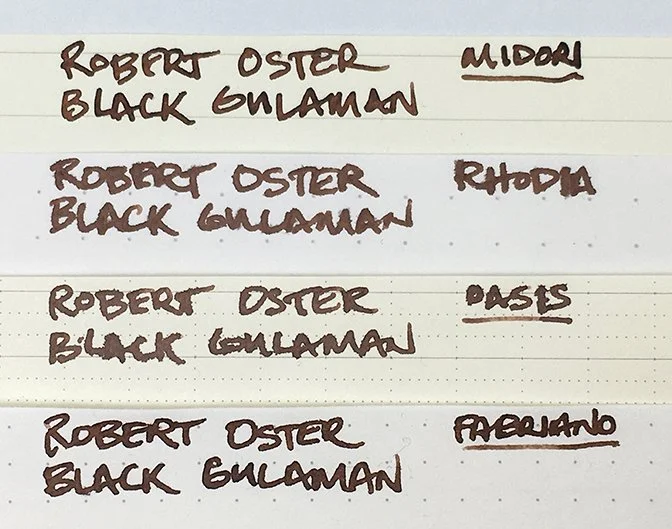 ROBERT OSTER MIDORI
BLACK GULAMAN
ROBERT OSTER RHODIA
BLACK GULAMAN
ROBERT OSTER OASIS
BLACK GULAMAN
ROBERT OSTER FABRIANO
BLACK GULAMAN